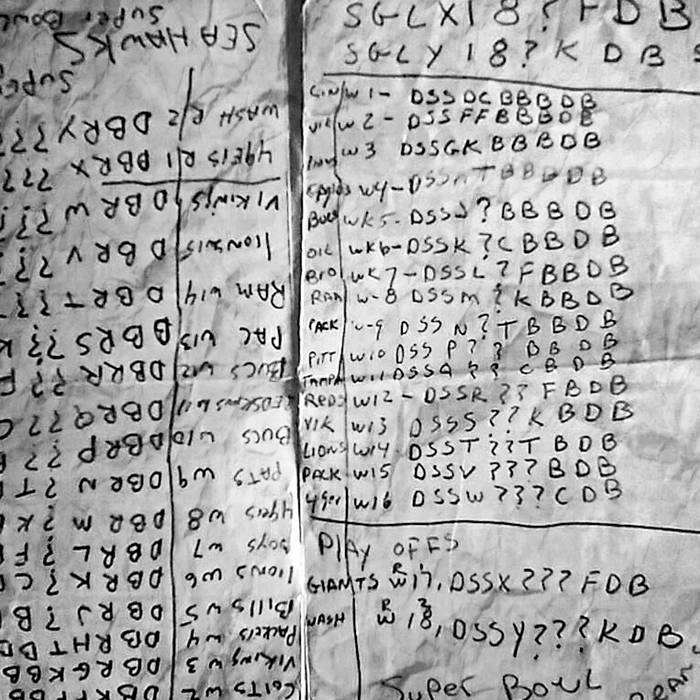 SGLX18?FDB
SGLY18?KDB
CIN W1- DSSDCBBBDB
VIK W2- DSSFFBBBDB
W3 DSSGKBBBDB
W4-DSSHTBBBDB
WK5-DSSJ?BBBDB
OIL WK6-DSSK?CBBDB
BRO WK7-DSSL?FBBDB
RAM W-8 DSSM?KBBDB
PACK W-9 DSSN?TBBDB
PITT W10 DSSP??BBDB
TAMPA W11 DSSQ??CBDB
REDS W12-DSSR??FBDB
VIK W13 DSSS??KBDB
LIONS W14 DSST??TBDB
PACK W15 DSSV???BDB
49er W16 DSSW???CDB
PLAY OFFS
GIANTS R W17, DSSX???FDB
WASH R2 W18, DSSY???KDB
Super Bowl
Colts W2
VIKING W3 DBRGKBB
Packers W4 DBRHTBB
Bills W5 DBRJ?B
lions W6 DBRK?C
boys W7 DBRL?F
49ers W8 DBRM?K
PATS W9 DBRN?T
BUCS W10 DBRP??
REDSKINS W11 DBRQ??C
BUCS W12 DBRR??F
PAC W13 DBRS??K
RAM W14 DBRT??
lions W15 DBRV??
VIKINGS DBRW??
49ers R1 DBRX ???
WASH R2 DBRY???
SEAHAWKS
Super Bowl